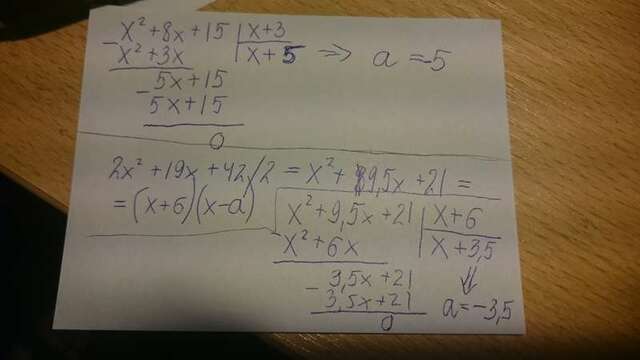 x² + 8x + 15 | x+3
- x² + 3x x + 5 => a = -5
- 5x + 15
5x + 15
0
2x² + 19x + 42 / 2 = x² + 9,5x + 21 =
= (x+6)(x-a)
x² + 9,5x + 21 | x + 6
x² + 6x x + 3,5
- 3,5x + 21 ⇓
3,5x + 21 a = -3,5
0